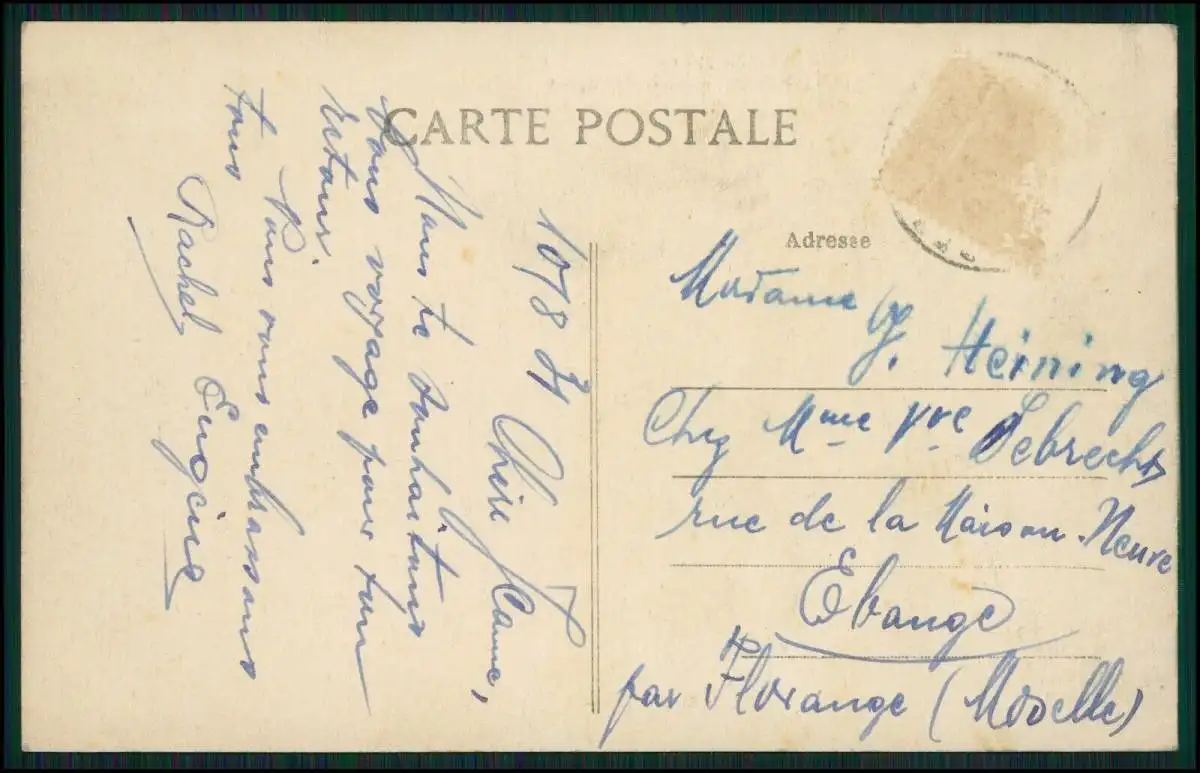 CARTE POSTALE
10/8 31
Chère Jeanne,
Nous te souhaitons
bons voyage pour ton
retour.
Nous vous embrassons
tous
Rachel Eugène
Adresse
Madame G. Heining
Chez Mme Vve Lebrecht
rue de la Maison-Neuve
Ebange
par Florange (Moselle)